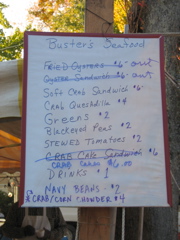 Buster's Seafood
FRIED OYSTERS $6 out
OYSTER SANDWICH $6 out
SOFT CRAB SANDWICH $6
CRAB QUESADILLA $4
GREENS $2
BLACKEYED PEAS $2
STEWED TOMATOES $2
CRAB CAKE SANDWICH $6
CRAB CAKES $6.00
DRINKS $1
NAVY BEANS $2
CRAB/CORN CHOWDER $4